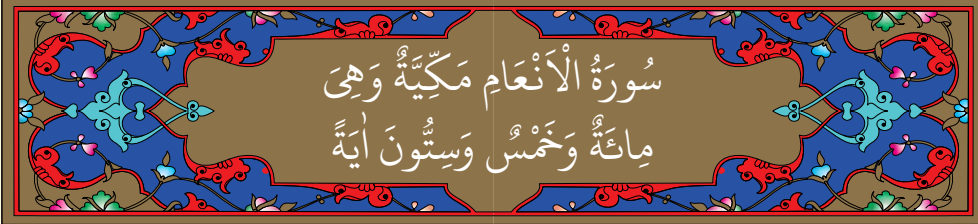 سُورَةُ الْاَنْعَامِ مَكِّيَّةٌ وَهِىَ
مِائَةٌ وَخَمْسٌ وَسِتُّونَ اٰيَةً